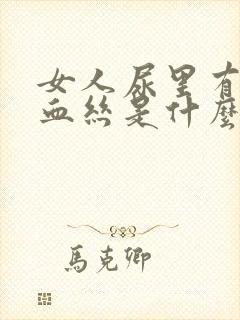 女人尿里有
血丝是什麼
馬克卿